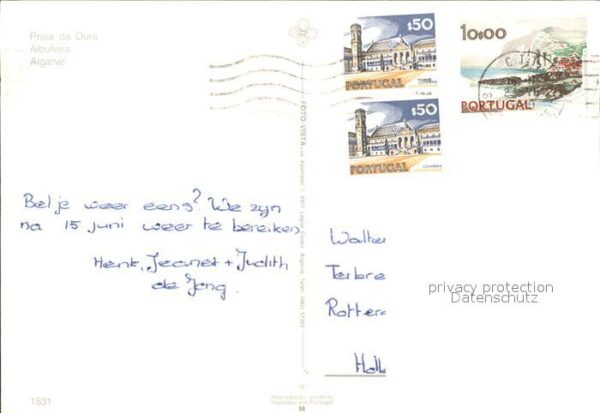 Praia da Oura
Albufeira
Algarve
$50
PORTUGAL
$50
PORTUGAL
10$00
PORTUGAL
FOTO-VISTA
Bel je weer eens? We zijn
na 15 juni weer te bereiken
Henk, Jeanet + Judith
de Jong.
Walter
Terbre
Rotter
Holl
privacy protection
Datenschutz
1531
M